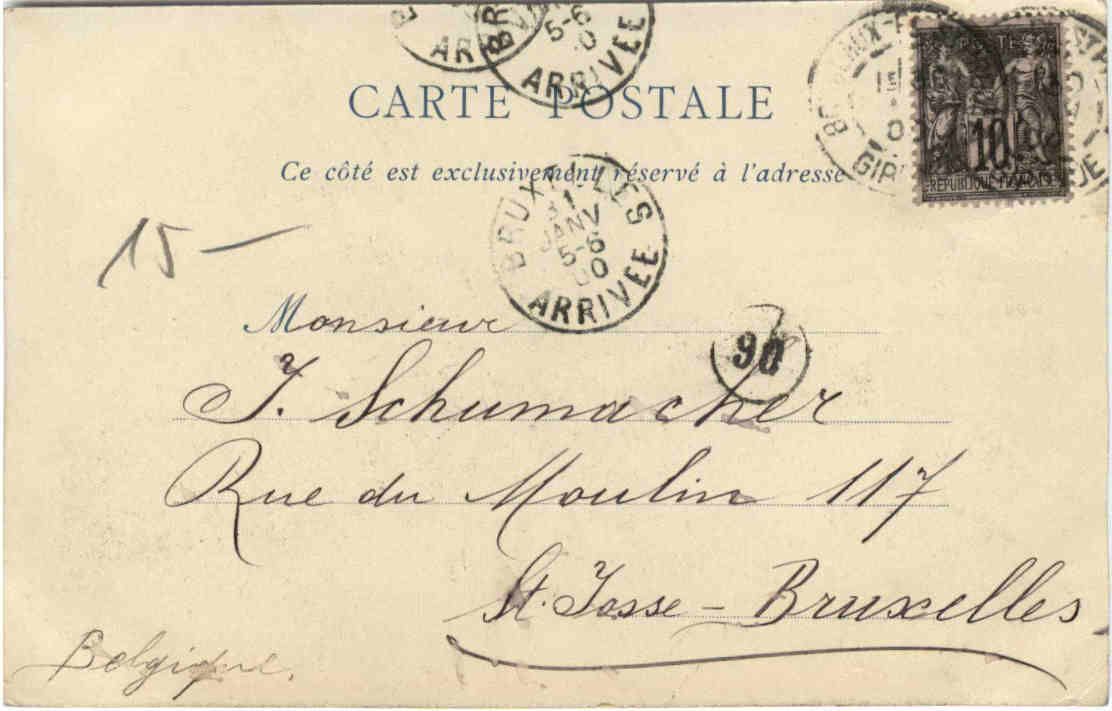 ARRIVEE
5-6
CARTE POSTALE
Ce côté est exclusivement réservé à l'adresse
POSTE
10
REPUBLIQUE FRANÇAISE
BRUXELLES
31
JANV
5-6
00
ARRIVEE
15-
Monsieur
90
J. Schumacher
Rue du Moulin 117
St. Josse - Bruxelles
Belgique.